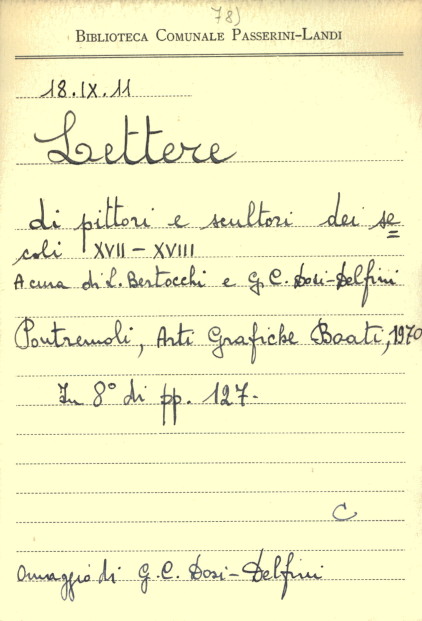 78)
BIBLIOTECA COMUNALE PASSERINI-LANDI
18.IX.11
Lettere
di pittori e scultori dei se=
coli XVII - XVIII
A cura di L. Bertocchi e G. C. Dosi-Delfini
Pontremoli, Arti Grafiche Boati, 1970
In 8° di pp. 127-
C
Omaggio di G. C. Dosi-Delfini